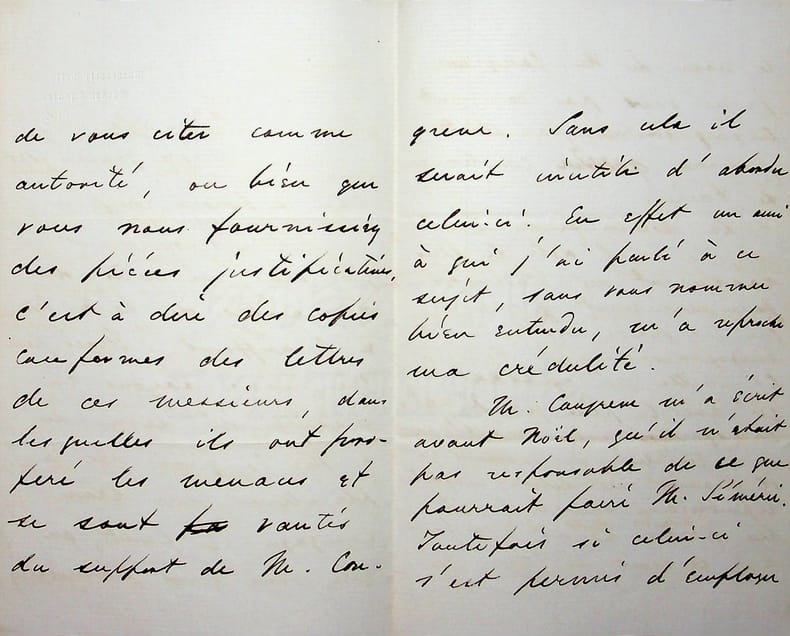 de vous citer comme
autorité, ou bien que
vous nous fournissiez
des pièces justificatives,
c'est à dire des copies
conformes des lettres
de ces messieurs, dans
lesquelles ils ont pro-
féré les menaces et
se sont vantés
du support de M. Con-
greve. Sans cela il
serait inutile d'aborder
celui-ci. En effet un ami
à qui j'ai parlé à ce
sujet, sans vous nommer
bien entendu, m'a reproché
ma crédulité.
M. Congreve m'a écrit
avant Noël, qu'il n'était
pas responsable de ce que
pourrait faire M. Sémérie.
Toutefois si celui-ci
s'est permis d'employer